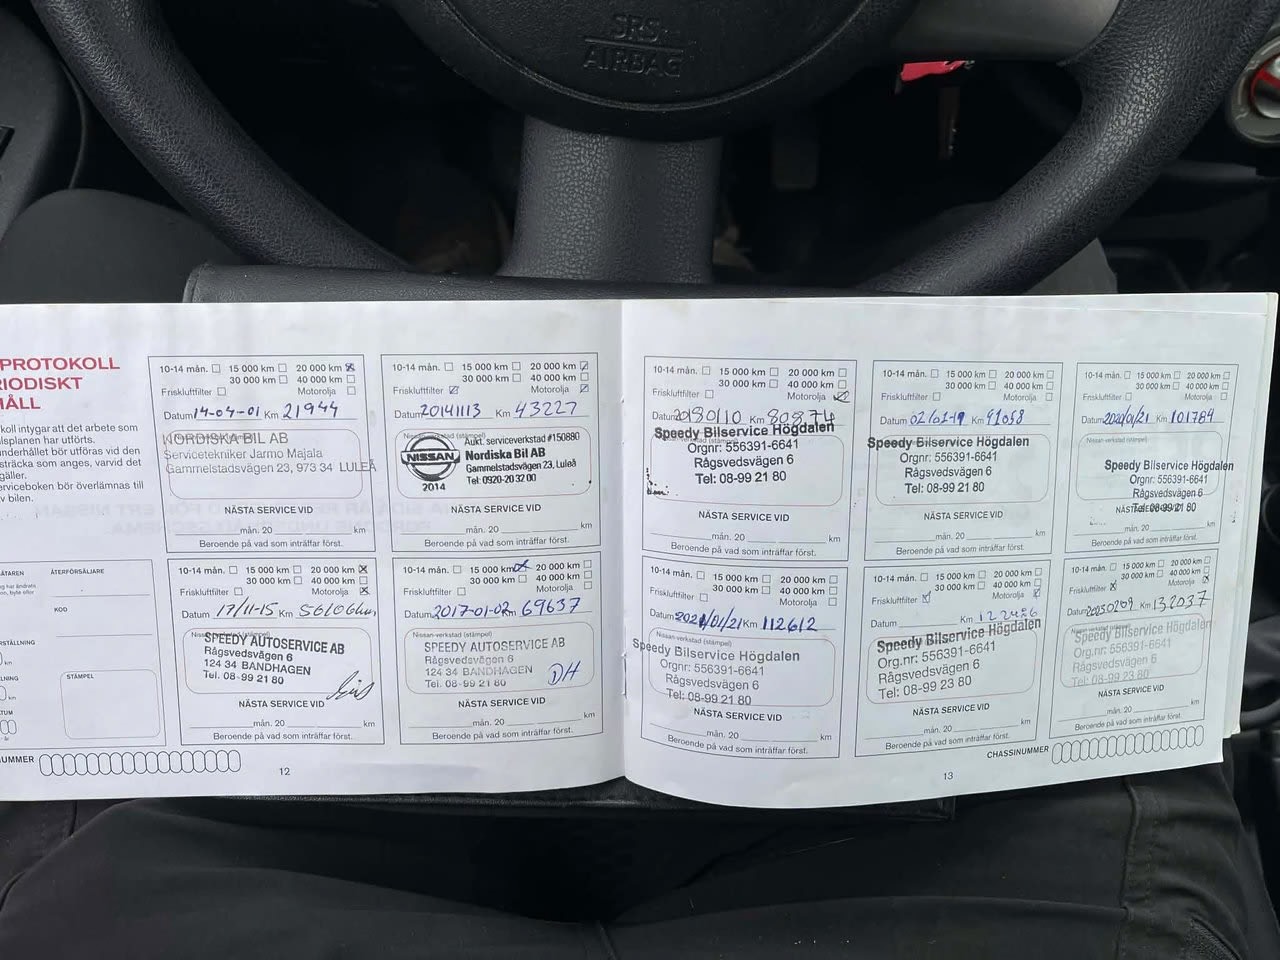 SRS
AIRBAG
PROTOKOLL
RIODISKT
HÅLL
koll intygar att det arbete som
lsplanen har utförts.
underhållet bör utföras vid den
sträcka som anges, varvid det
gäller.
erviceboken bör överlämnas till
v bilen.
ÅTERFÖRSÄLJARE
KOD
STÄMPEL
NUMMER
12
10-14 mån. 15 000 km 20 000 km
30 000 km 40 000 km
Friskluftfilter Motorolja
Datum 14-04-01 Km 21944
NORDISKA BIL AB
Servicetekniker Jarmo Majala
Gammelstadsvägen 23, 973 34 LULEÅ
NÄSTA SERVICE VID
mån. 20 km
Beroende på vad som inträffar först.
10-14 mån. 15 000 km 20 000 km
30 000 km 40 000 km
Friskluftfilter Motorolja
Datum 20141113 Km 43227
Nissan-verkstad (stämpel)
NISSAN
2014
Aukt. serviceverkstad #150880
Nordiska Bil AB
Gammelstadsvägen 23, Luleå
Tel: 0920-20 32 00
NÄSTA SERVICE VID
mån. 20 km
Beroende på vad som inträffar först.
10-14 mån. 15 000 km 20 000 km
30 000 km 40 000 km
Friskluftfilter Motorolja
Datum 17/11-15 Km 56106km
SPEEDY AUTOSERVICE AB
Rågsvedsvägen 6
124 34 BANDHAGEN
Tel. 08-99 21 80
NÄSTA SERVICE VID
mån. 20 km
Beroende på vad som inträffar först.
10-14 mån. 15 000 km 20 000 km
30 000 km 40 000 km
Friskluftfilter Motorolja
Datum 2017-01-02 Km 69637
Nissan-verkstad (stämpel)
SPEEDY AUTOSERVICE AB
Rågsvedsvägen 6
124 34 BANDHAGEN
Tel. 08-99 21 80
DH
NÄSTA SERVICE VID
mån. 20 km
Beroende på vad som inträffar först.
10-14 mån. 15 000 km 20 000 km
30 000 km 40 000 km
Friskluftfilter Motorolja
Datum 20180110 Km 80874
Speedy Bilservice Högdalen
Orgnr: 556391-6641
Rågsvedsvägen 6
Tel: 08-99 21 80
NÄSTA SERVICE VID
mån. 20 km
Beroende på vad som inträffar först.
10-14 mån. 15 000 km 20 000 km
30 000 km 40 000 km
Friskluftfilter Motorolja
Datum Km 91058
Speedy Bilservice Högdalen
Orgnr: 556391-6641
Rågsvedsvägen 6
Tel: 08-99 21 80
NÄSTA SERVICE VID
mån. 20 km
Beroende på vad som inträffar först.
10-14 mån. 15 000 km 20 000 km
30 000 km 40 000 km
Friskluftfilter Motorolja
Datum Km 101784
Nissan-verkstad (stämpel)
Speedy Bilservice Högdalen
Orgnr: 556391-6641
Rågsvedsvägen 6
Tel: 08-99 21 80
NÄSTA SERVICE VID
mån. 20 km
Beroende på vad som inträffar först.
10-14 mån. 15 000 km 20 000 km
30 000 km 40 000 km
Friskluftfilter Motorolja
Datum 2021/01/21 Km 112612
Nissan-verkstad (stämpel)
Speedy Bilservice Högdalen
Orgnr: 556391-6641
Rågsvedsvägen 6
Tel: 08-99 21 80
NÄSTA SERVICE VID
mån. 20 km
Beroende på vad som inträffar först.
10-14 mån. 15 000 km 20 000 km
30 000 km 40 000 km
Friskluftfilter Motorolja
Datum Km
Speedy Bilservice Högdalen
Org.nr: 556391-6641
Rågsvedsvägen 6
Tel: 08-99 23 80
NÄSTA SERVICE VID
mån. 20 km
Beroende på vad som inträffar först.
10-14 mån. 15 000 km 20 000 km
30 000 km 40 000 km
Friskluftfilter Motorolja
Datum Km 132037
Nissan-verkstad (stämpel)
Speedy Bilservice Högdalen
Org.nr: 556391-6641
Rågsvedsvägen 6
Tel: 08-99 23 80
NÄSTA SERVICE VID
mån. 20 km
Beroende på vad som inträffar först.
CHASSINUMMER
13